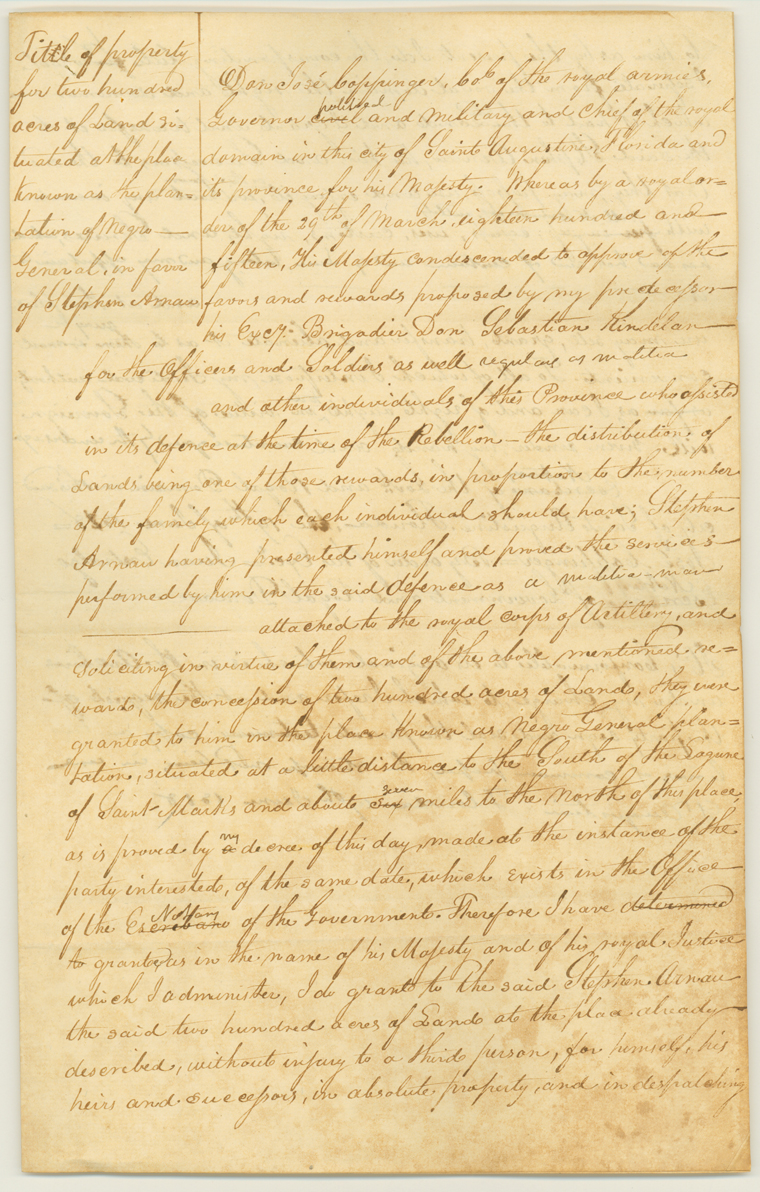 Title of property
for two hundred
acres of Land si-
tuated at the place
known as the plan=
tation of Negro —
General, in favor
of Stephen Arnau
Don José Coppinger, Col. of the royal armies,
Governor civil political and Military and Chief of the royal
domain in this city of Saint Augustine, Florida and
its province for his Majesty. Whereas by a royal or=
der of the 29th of March, eighteen hundred and —
fifteen, His Majesty condescended to approve of the
favors and rewards proposed by my predecessor —
his Excy. Brigadier Don Sebastian Kindelan —
for the Officers and Soldiers as well regulars as militia
and other individuals of this Province who assisted
in its defence at the time of the Rebellion — the distribution of
Lands being one of those rewards, in proportion to the number
of the family which each individual should have; Stephen
Arnau having presented himself and proved the services —
performed by him in the said defence as a militia-man
attached to the royal corps of Artillery, and
soliciting in virtue of them and of the above mentioned re=
wards, the concession of two hundred acres of Land, they were
granted to him in the place known as Negro General plan=
tation, situated at a little distance to the South of the Lagune
of Saint Marks and about six seven miles to the North of this place,
as is proved by a my decree of this day, made at the instance of the
party interested, of the same date, which exists in the Office
of the Escribano Notary of the Government. Therefore I have determined
to granted as in the name of his Majesty and of his royal Justice
which I administer, I do grant to the said Stephen Arnau
the said two hundred acres of Land at the place already
described, without injury to a third person, for himself, his
heirs and successors, in absolute property, and in despatching